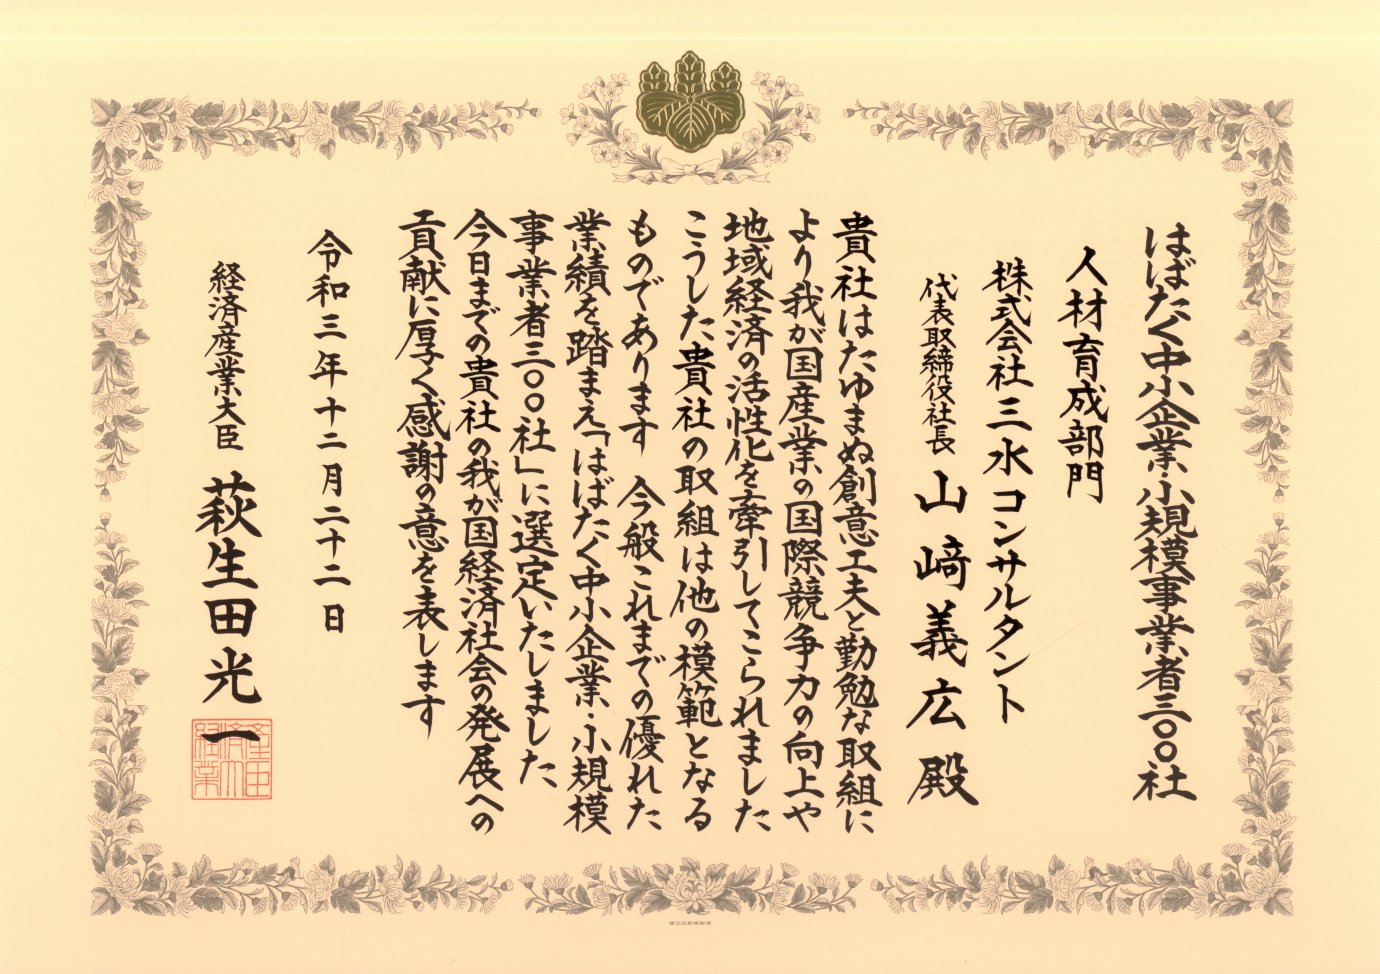 はばたく中小企業・小規模事業者三〇〇社
人材育成部門
株式会社三水コンサルタント
代表取締役社長 山﨑義広殿
貴社はたゆまぬ創意工夫と勤勉な取組に
より我が国産業の国際競争力の向上や
地域経済の活性化を牽引してこられました
こうした貴社の取組は他の模範となる
ものであります 今般これまでの優れた
業績を踏まえ「はばたく中小企業・小規模
事業者三〇〇社」に選定いたしました
今日までの貴社の我が国経済社会の発展への
貢献に厚く感謝の意を表します
令和三年十二月二十二日
経済産業大臣 萩生田光一